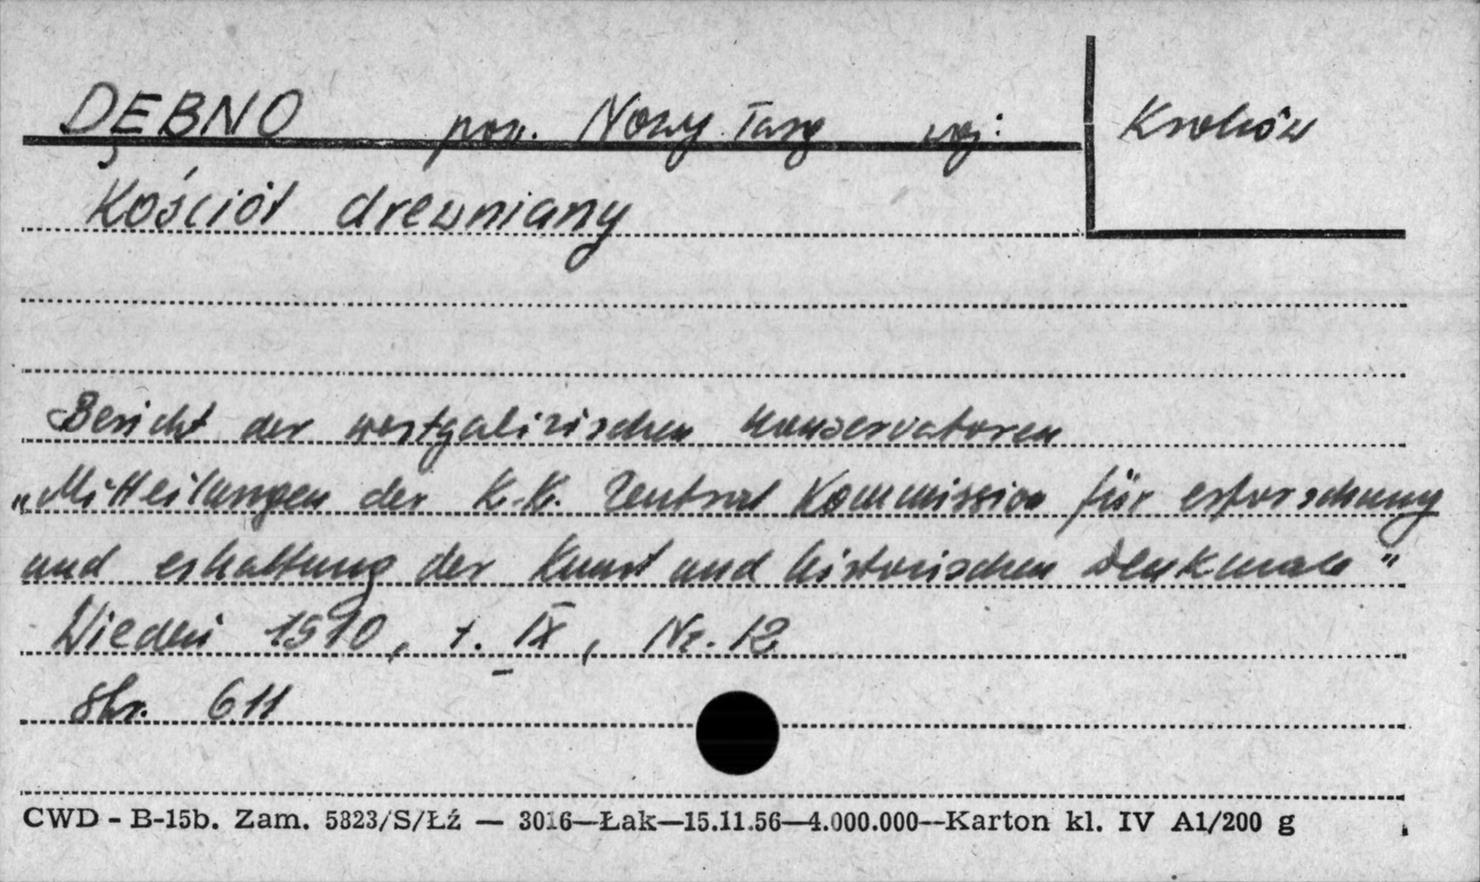 DĘBNO pow. Nowy Targ woj: Kraków
Kościół drewniany
Bericht der westgalizischen Konservatoren
„Mitteilungen der K.K. Zentral Kommission für erforschung
und erhaltung der Kunst und historischen Denkmale"
Wiedeń 1910, t. IX, Nr. 12
str. 611
CWD - B-15b. Zam. 5823/S/Łź — 3016—Łak—15.11.56—4.000.000—Karton kl. IV A1/200 g